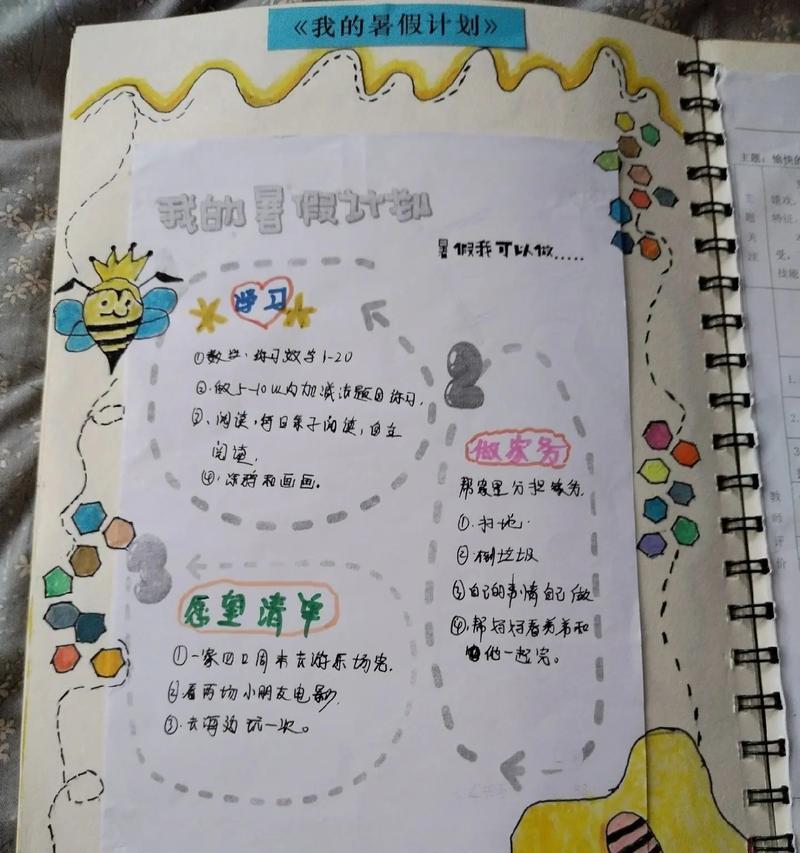 《我的暑假计划》
我的暑假计划
暑假我可以做.....
学习
①数学:练习数字1-20
②.做5-10以内加减法题目练习.
③、阅读,每日亲子阅读,自主
阅读.
④.涂鸦和画画。
2
做家务
帮家里分担家务.
①.扫地.
②倒垃圾
③自己的事情自己做
④.帮妈妈看弟弟和
他一起完。
3
愿望清单
①一家四口周末去游乐场完.
②看两场小朋友电影.
③.去海边玩一次。
主题:愉快的
主
题
关
注
特征.
受,
技能
1.
2.
3
教
师
评
价